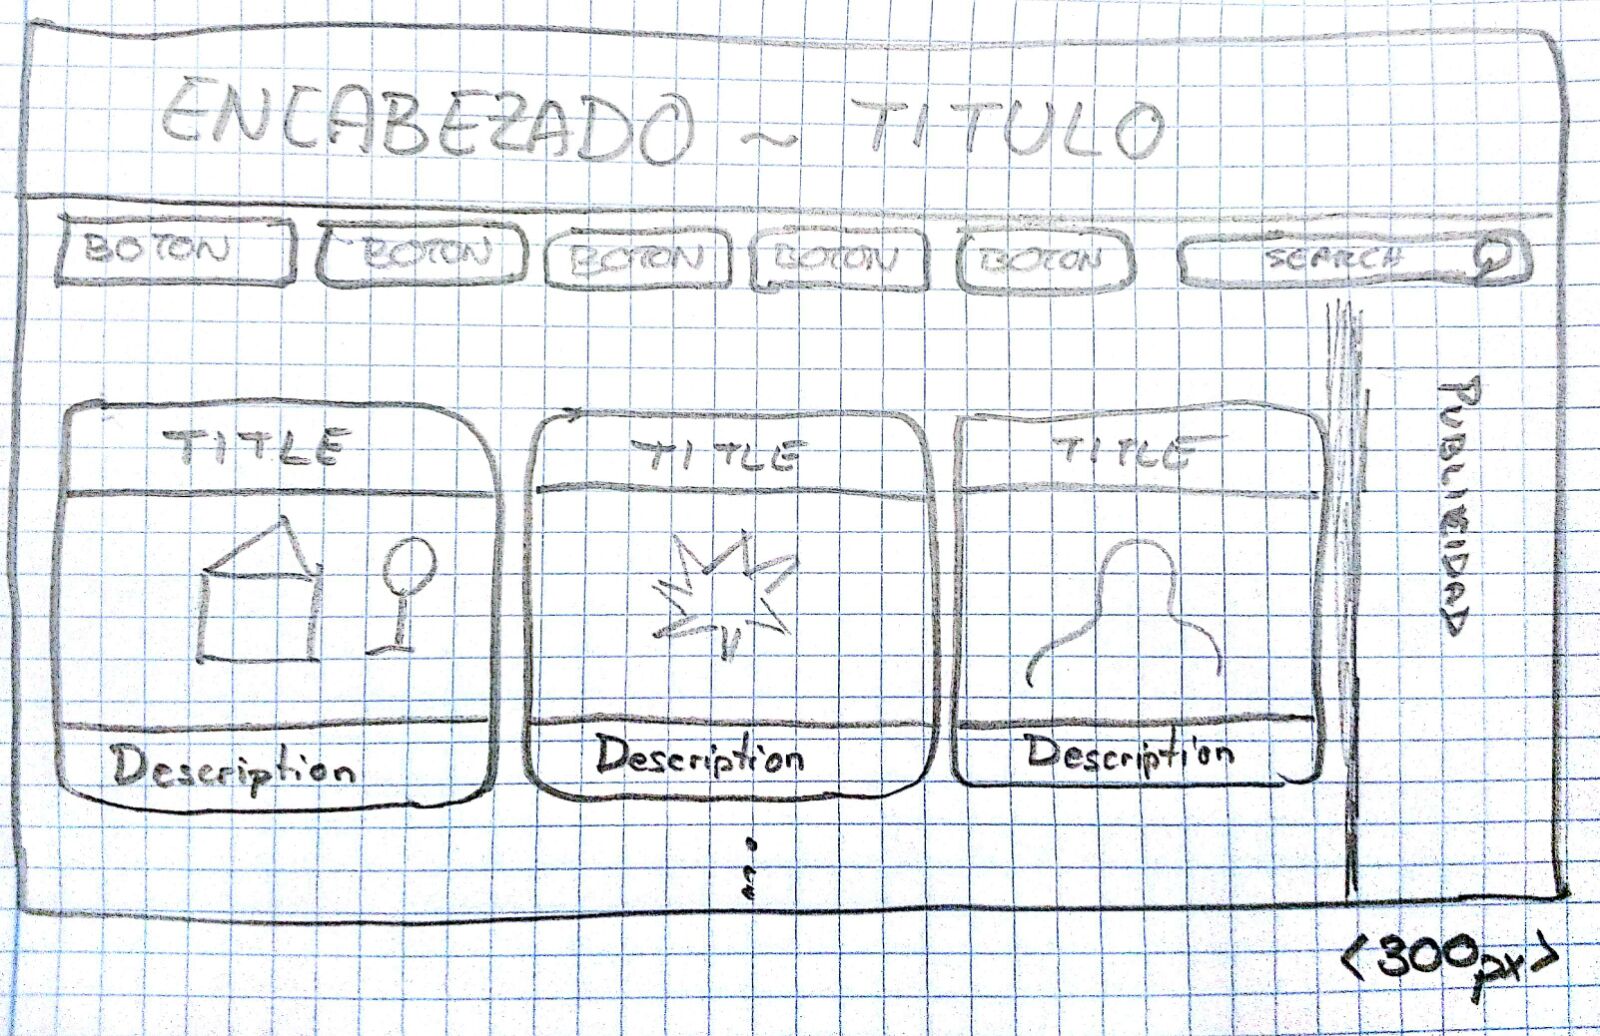 ENCABEZADO ~ TITULO
BOTON BOTON BOTON BOTON BOTON SEARCH
TITLE TITLE TITLE
Description Description Description
PUBLICIDAD
<300px>